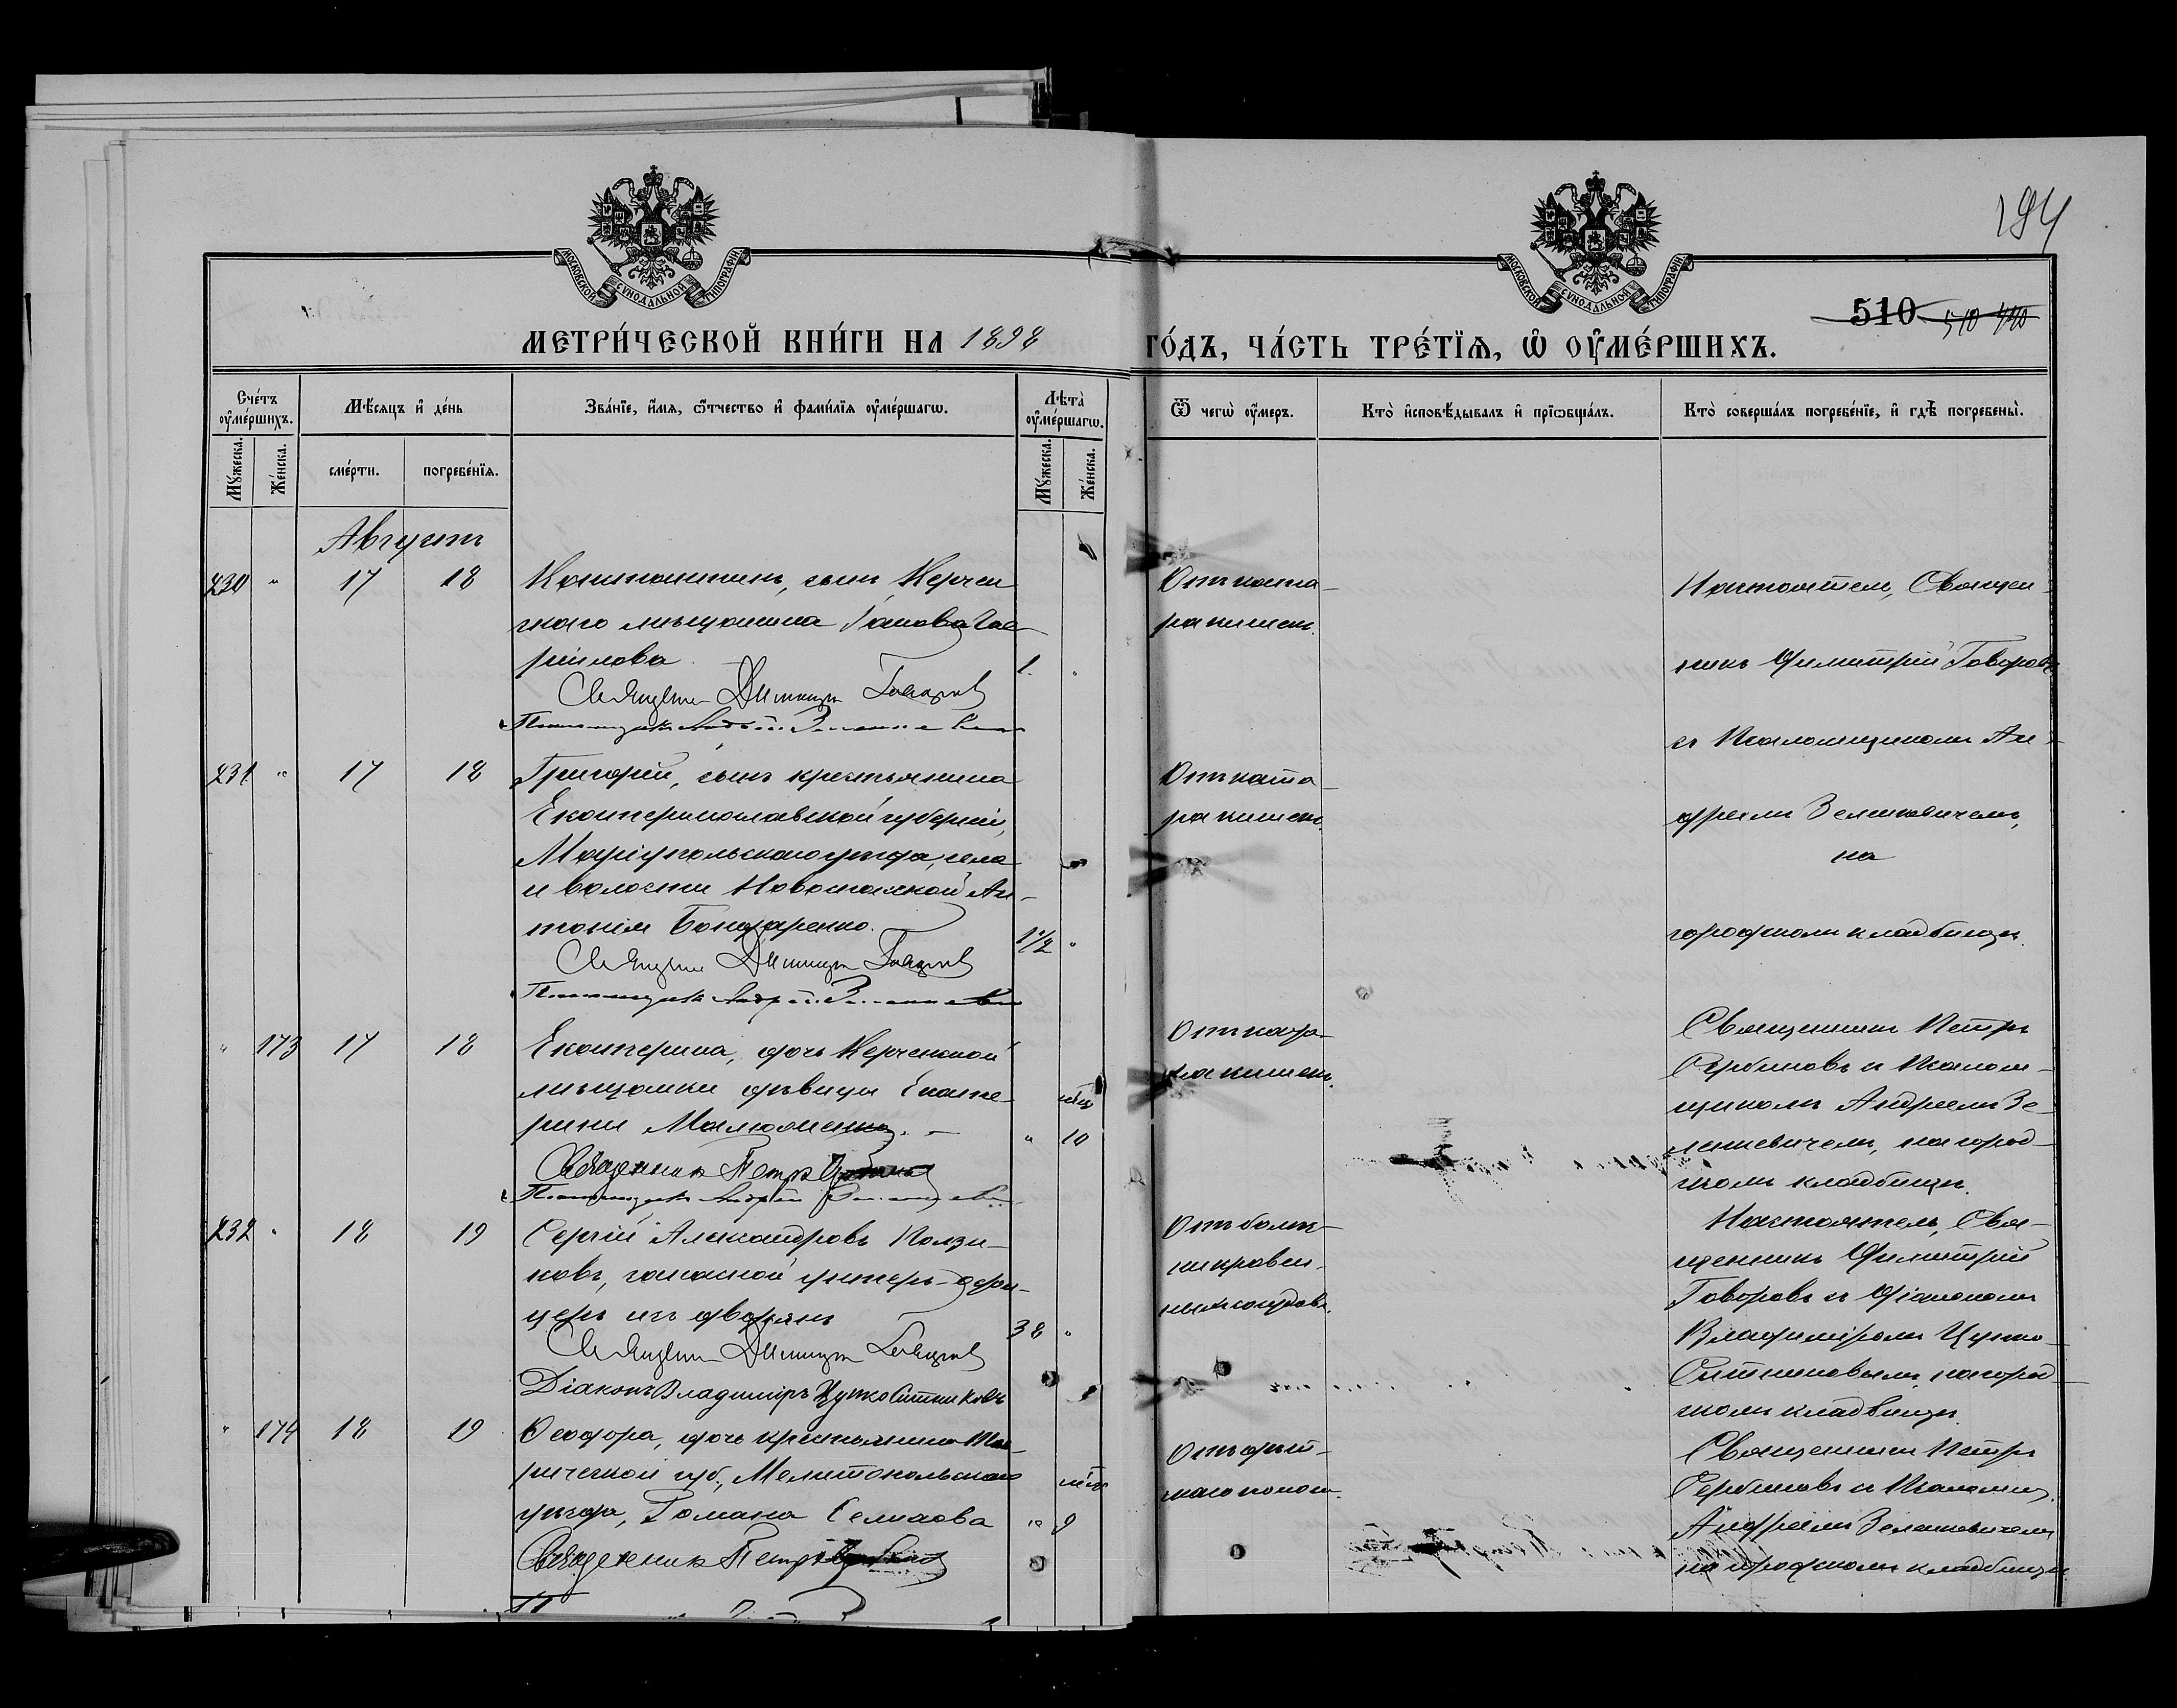 194
МОСКОВСКОЙ СѴНОДАЛЬНОЙ ТИПОГРАФІИ
МОСКОВСКОЙ СѴНОДАЛЬНОЙ ТИПОГРАФІИ
510 510 440
МЕТРИ́ЧЕСКОЙ КНИ́ГИ НА 1898
ГО́ДЪ, ЧА́СТЬ ТРЕ́ТЇѦ, Ѡ ОУ҆МЕ́РШИХЪ.
Сче́тъ оу҆ме́ршихъ.
Мѣ́сяцъ и҆ де́нь
Зва́нїе, и҆́мя, ѻ҆́тчество и҆ фами́лїя оу҆ме́ршагѡ.
Лѣ́та оу҆ме́ршагѡ.
Ѿ чегѡ̀ оу҆́меръ.
Кто̀ и҆сповѣ́дывалъ и҆ прїѡбща́лъ.
Кто̀ соверша́лъ погребе́нїе, и҆ гдѣ̀ погребены̀.
Мꙋ́жеска.
Же́нска.
сме́рти.
погребе́нїя.
Мꙋ́жеска.
Же́нска.
Августъ
230 " 17 18
Константинъ, сынъ Керчен
скаго мѣщанина Іакова Гав
рiилова
1 "
Священ. Димитрій Говоровъ
Псаломщикъ Андрей Зеленкевичъ
Отъ ката-
ра кишекъ.
Настоятель, Священ-
никъ Димитрій Говоровъ
съ Псаломщикомъ Ан-
дреемъ Зеленкевичемъ,
на
городскомъ кладбищѣ.
231 " 17 18
Григорій, сынъ крестьянина
Екатеринославской губерніи,
Маріупольскаго уѣзда, села
и волости Новоспасской Ан-
тонія Бондаренко.
1 1/2 "
Священ. Димитрій Говоровъ
Псаломщикъ Андрей Зеленкевичъ
Отъ ката-
ра кишекъ.
" 173 17 18
Екатерина, дочь Керченской
мѣщанки дѣвицы Екате-
рины
мѣс.
" 10
Священникъ Петръ Сербиновъ
Псаломщикъ Андрей Зеленкевичъ
Отъ ката-
ра кишекъ.
Священникъ Петръ
Сербиновъ съ Псалом-
щикомъ Андреемъ Зе-
ленкевичемъ, на город-
скомъ кладбищѣ.
232 " 18 19
Сергій Александровъ
запасной унтеръ-офи-
церъ изъ дворянъ
38 "
Священ. Димитрій Говоровъ
Діаконъ Владиміръ Цупко Ситниковъ
Настоятель, Свя-
щенникъ Димитрій
Говоровъ съ Діакономъ
Владиміромъ Цупко-
Ситниковымъ, на город-
скомъ кладбищѣ.
" 174 18 19
Ѳеодора, дочь крестьянина Тав-
рической губ., Мелитопольскаго
уѣзда, Романа
мѣс.
" 9
Священникъ Петръ Сербиновъ
Отъ дѣт-
скаго понос.
Священникъ Петръ
Сербиновъ съ Псаломщ.
Андреемъ Зеленкевичемъ
на городскомъ кладбищѣ